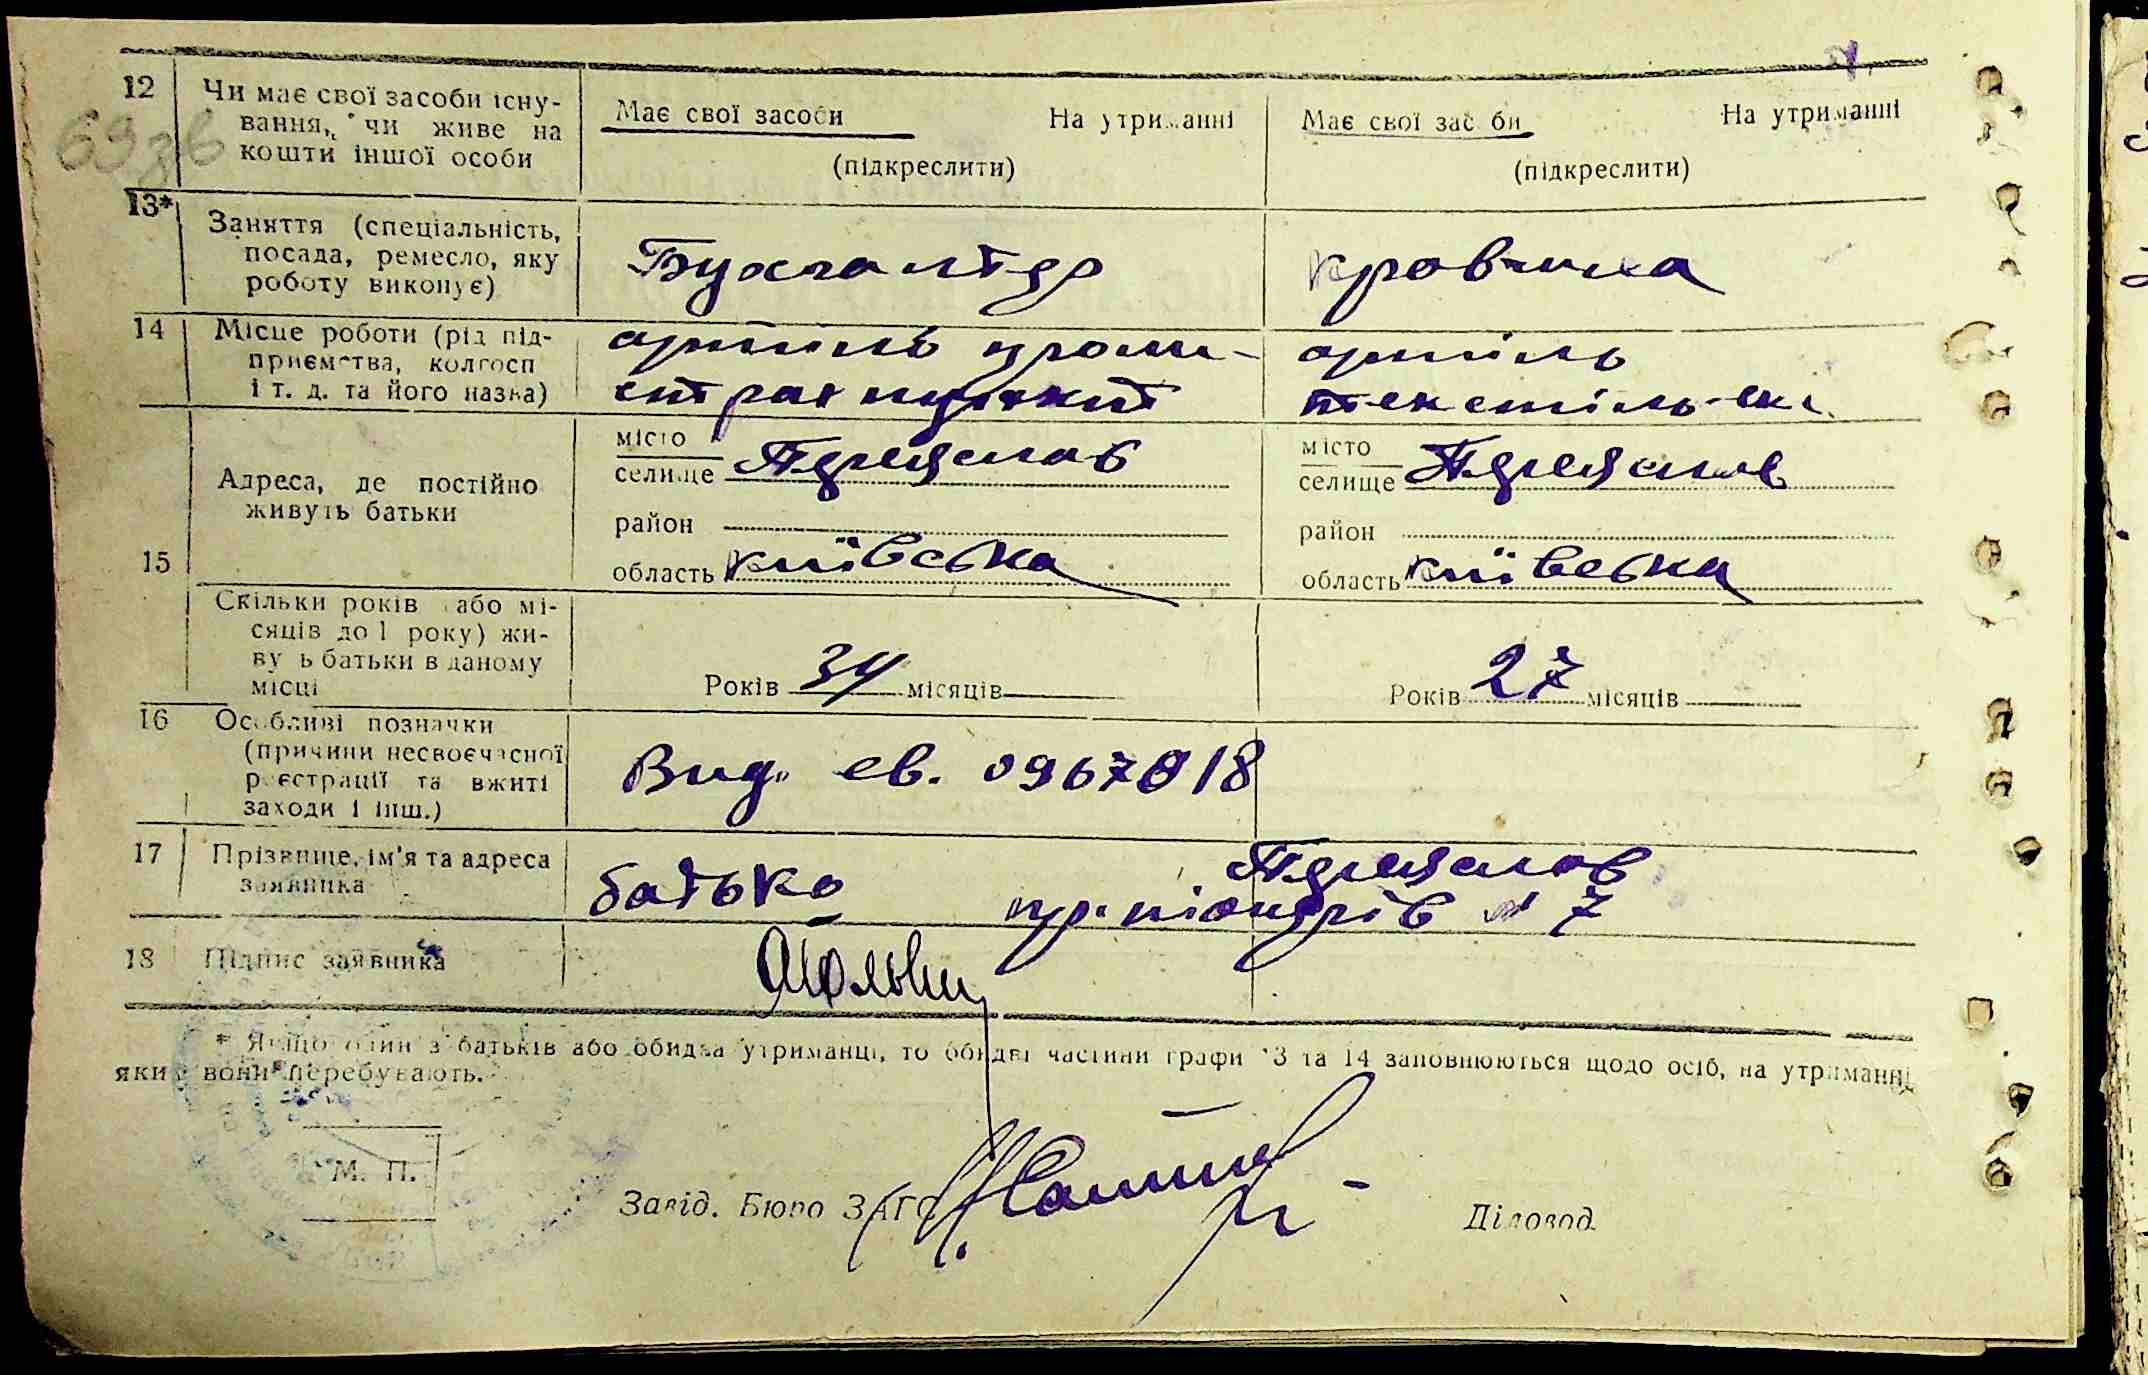 12 Чи має свої засоби існу- Має свої засоби На утриманні Має свої засоби На утриманні
вання, чи живе на
кошти іншої особи (підкреслити) (підкреслити)
13* Заняття (спеціальність,
посада, ремесло, яку Бухгалтер
роботу виконує)
14 Місце роботи (рід під- артіль пром- артіль
приємства, колгосп
і т. д. та його назва)
місто місто
селище Переяслав селище Переяслав
Адреса, де постійно
живуть батьки район район
15 область київська область київська
Скільки років або мі-
сяців до 1 року) жи-
вуть батьки в даному
місці Років 34 місяців Років 27 місяців
16 Особливі позначки
(причини несвоєчасної
реєстрації та вжиті Вид. св. 0967818
заходи і інш.)
17 Прізвище, ім'я та адреса Переяслав
заявника батько пр. піонерів № 7
18 Підпис заявника
* Якщо один з батьків або обидва утриманці, то обидві частини графи 13 та 14 заповнюються щодо осіб, на утриманні
яких вони перебувають.
М. П.
Завід. Бюро ЗАГС Діловод